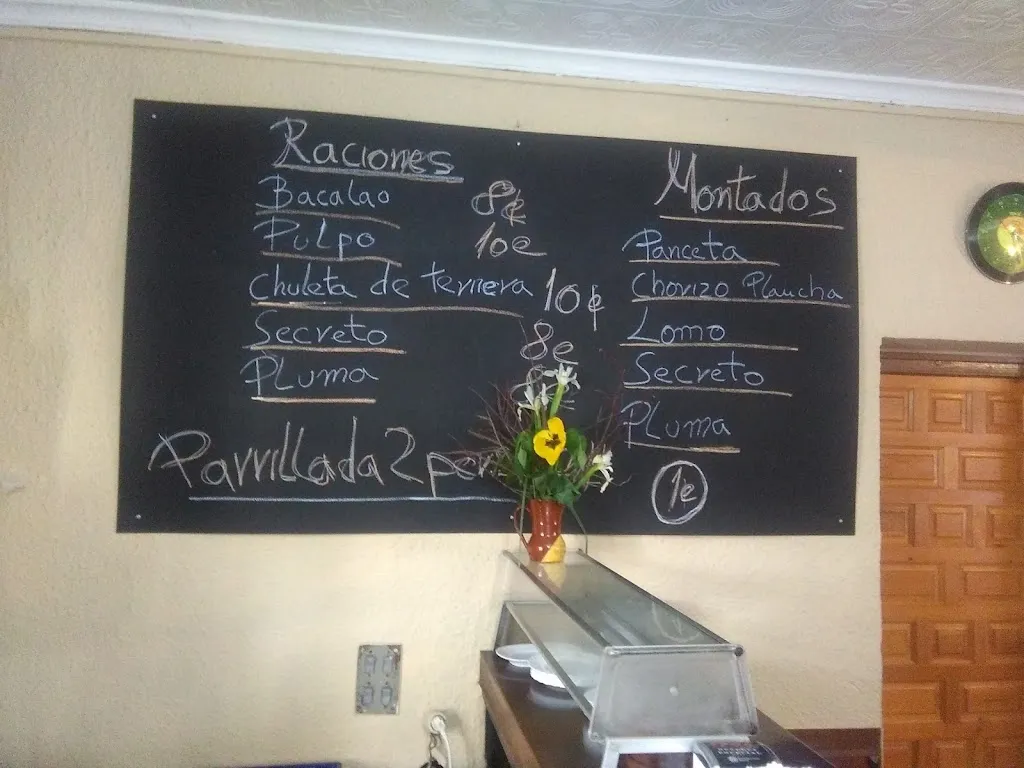 Raciones
Bacalao 8€
Pulpo 10€
Chuleta de ternera 10€
Secreto 8€
Pluma
Parrillada 2
Montados
Panceta
Chorizo Plancha
Lomo
Secreto
Pluma
1€